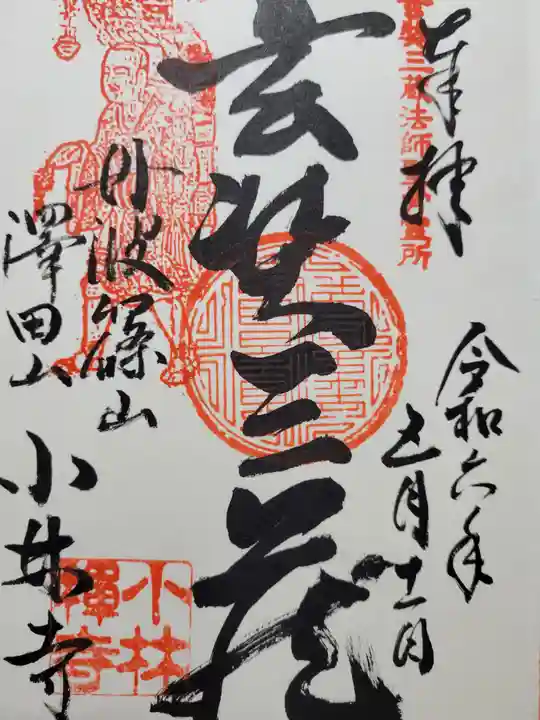 奉拝
三蔵法師
所
令和六年
五月十一日
玄奘三蔵
丹波篠山
澤田山
小林寺
小林
禅寺